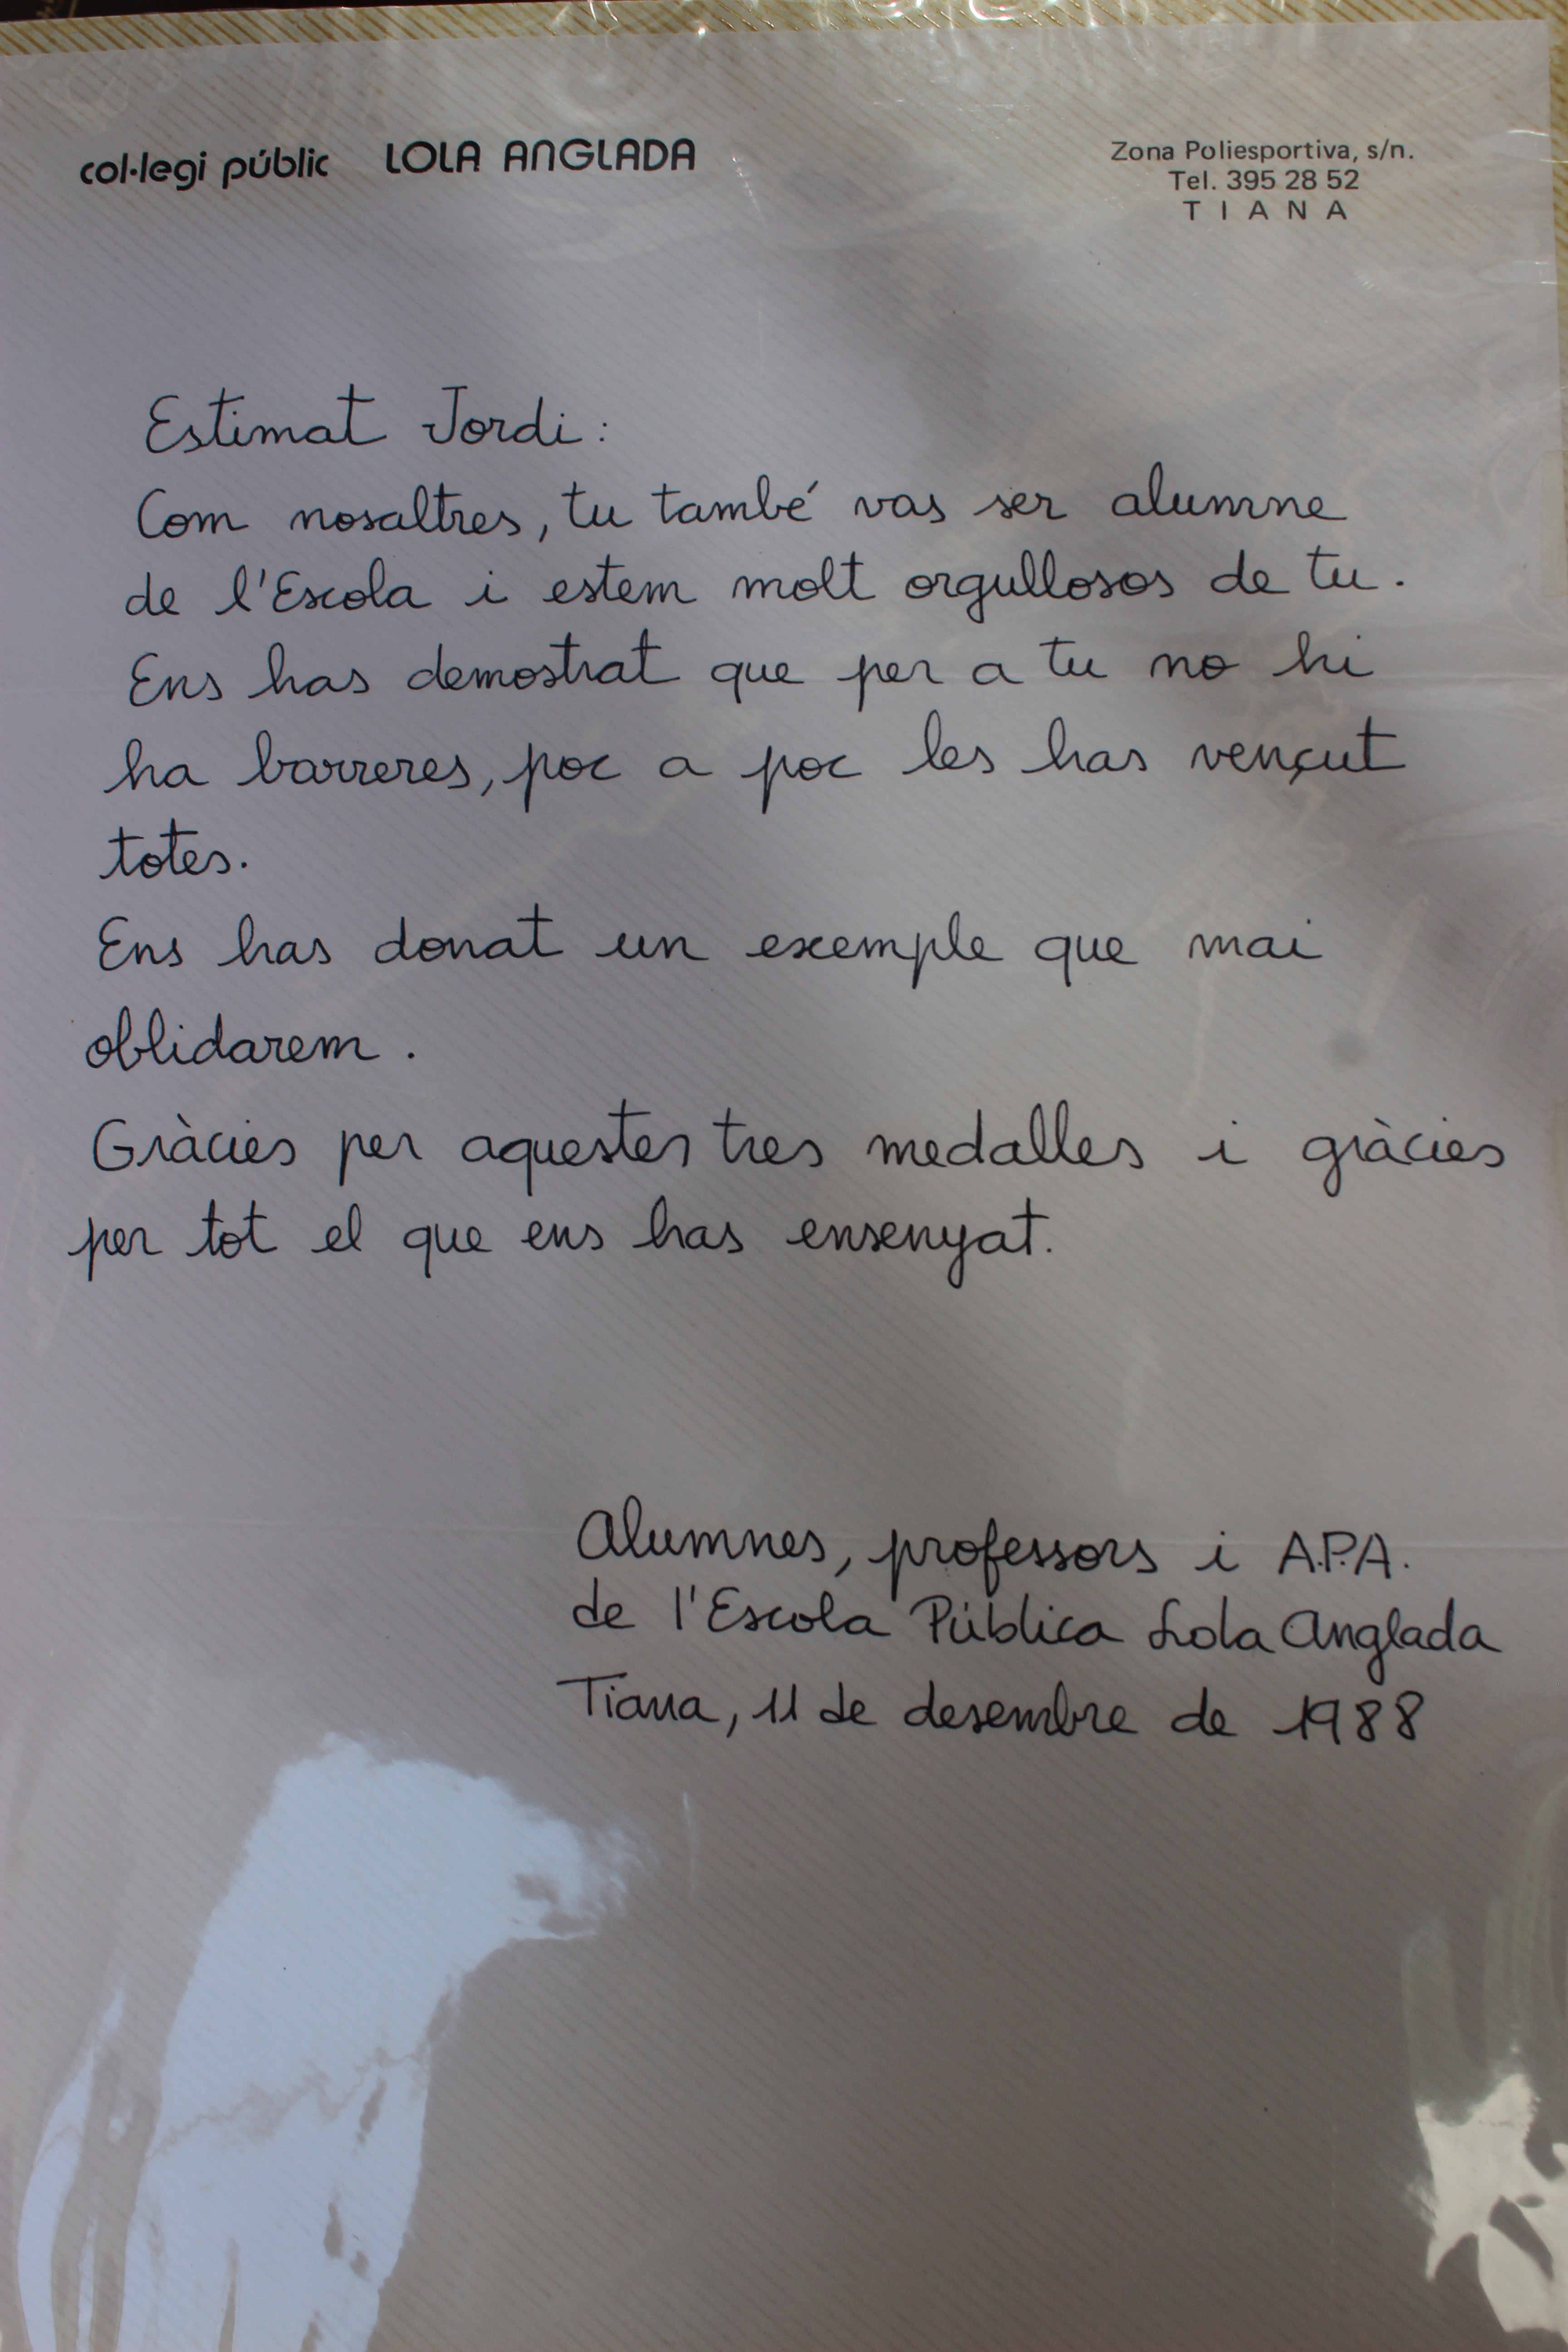 col·legi públic LOLA ANGLADA
Zona Poliesportiva, s/n.
Tel. 395 28 52
TIANA
Estimat Jordi:
Com nosaltres, tu també vas ser alumne
de l'Escola i estem molt orgullosos de tu.
Ens has demostrat que per a tu no hi
ha barreres, poc a poc les has vençut
totes.
Ens has donat un exemple que mai
oblidarem.
Gràcies per aquestes tres medalles i gràcies
per tot el que ens has ensenyat.
Alumnes, professors i A.P.A.
de l'Escola Pública Lola Anglada
Tiana, 11 de desembre de 1988